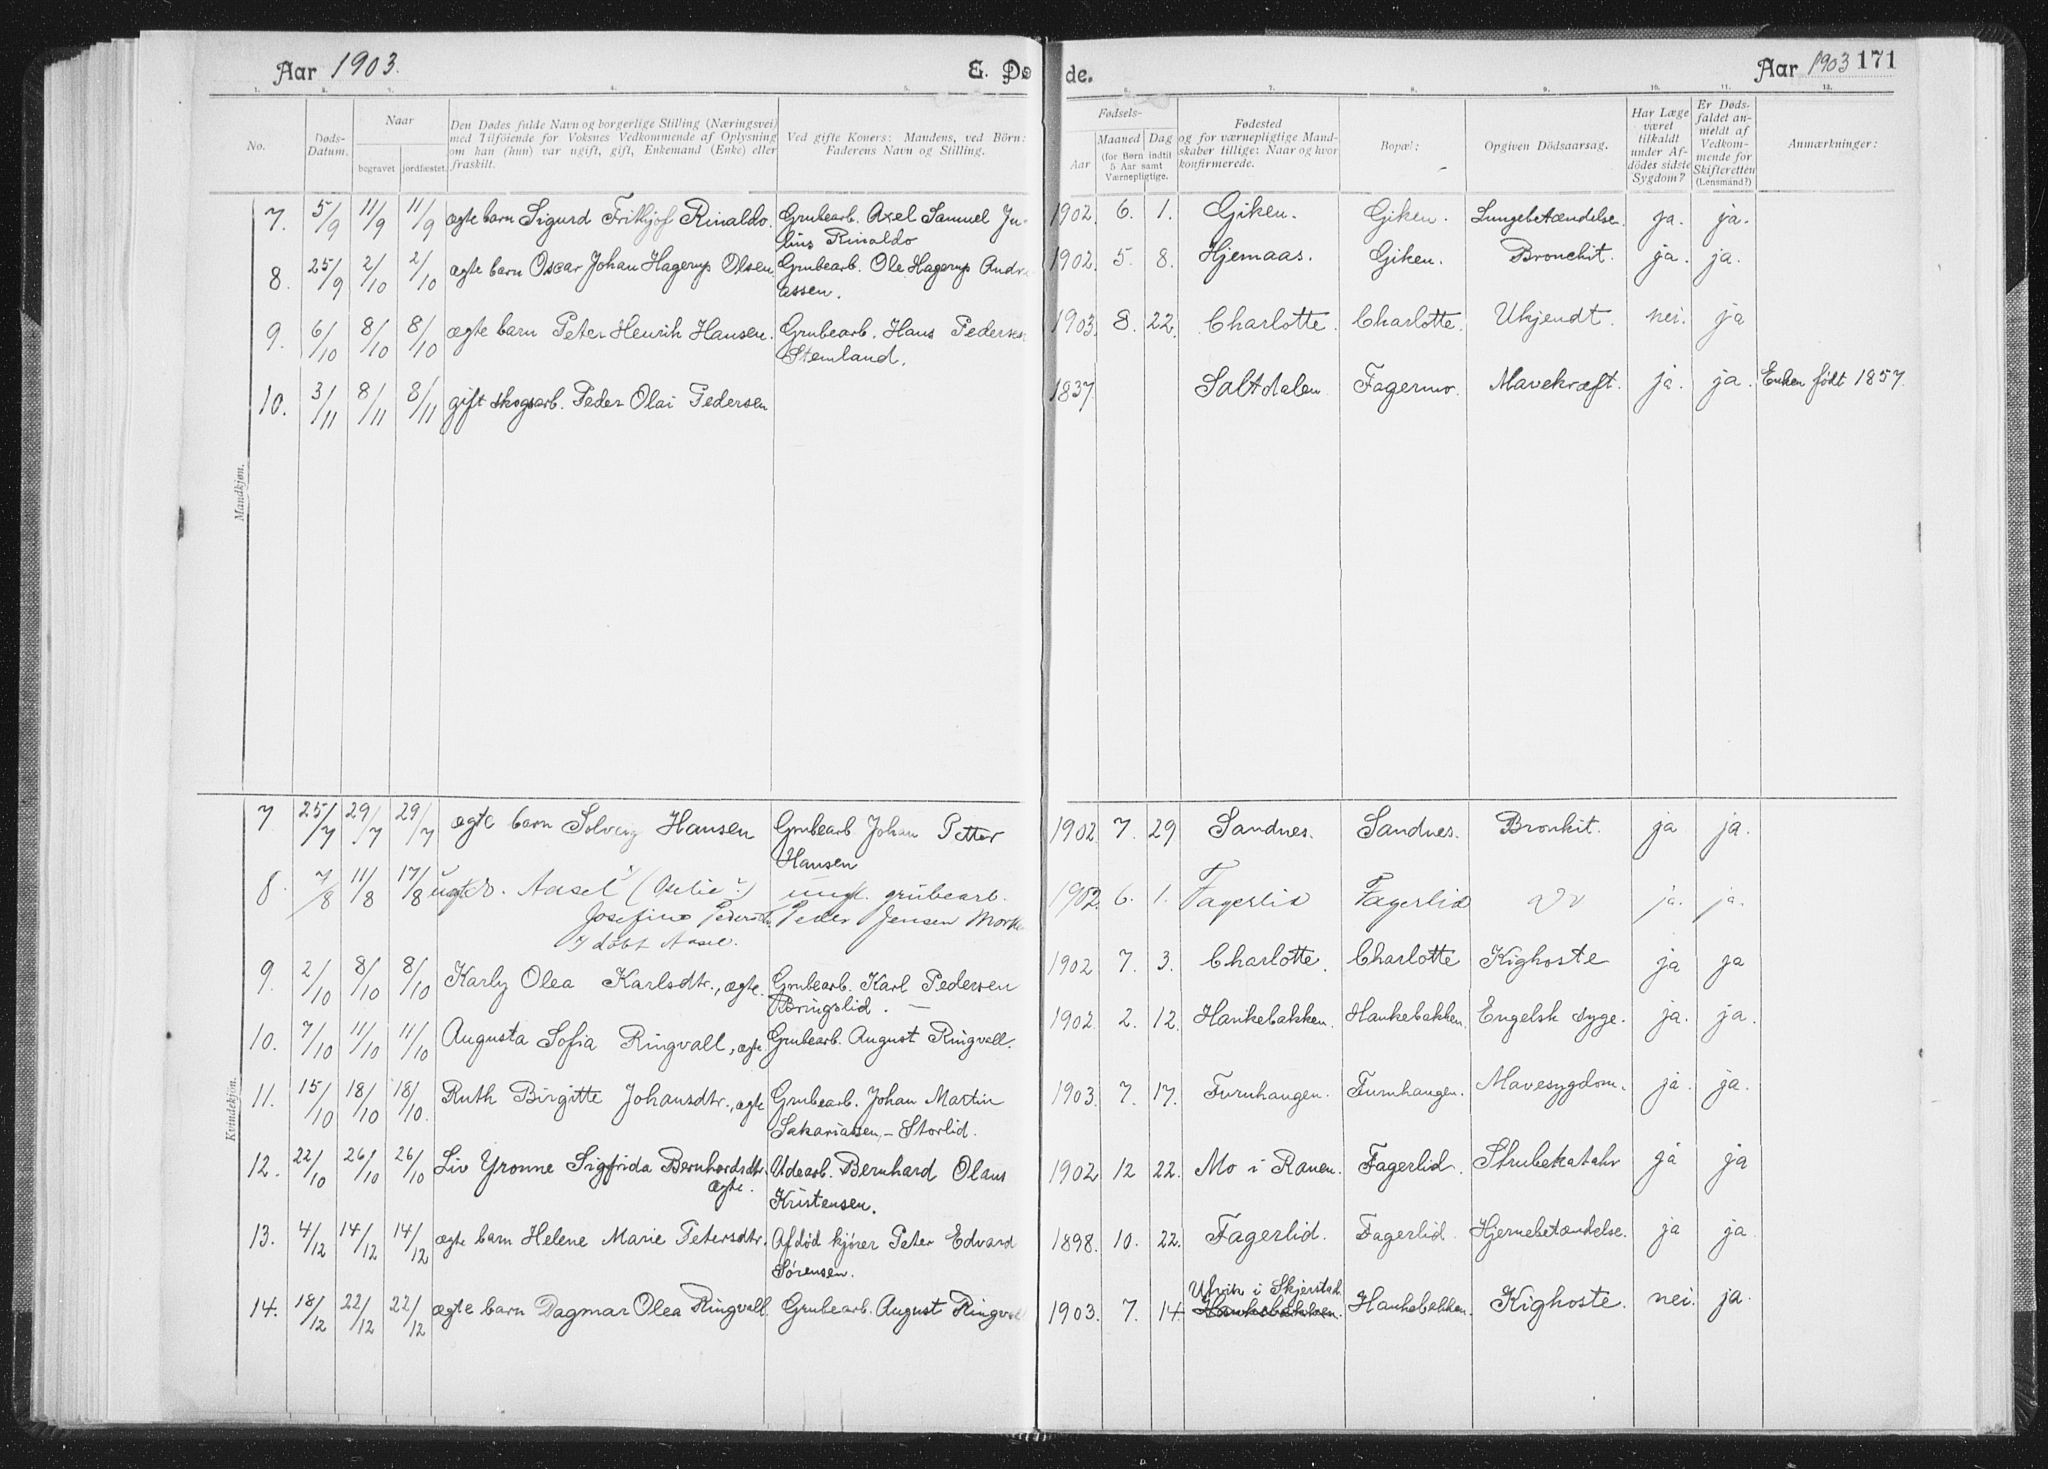 Aar 1903.
E. Do de.
Aar 1903 171
1. 2. 3. 4. 5. 6. 7. 8. 9. 10. 11. 12.
No.
Døds-
Datum.
Naar
begravet jordfæstet.
Den Dødes fulde Navn og borgerlige Stilling (Næringsvei)
med Tilföiende for Voksnes Vedkommende af Oplysning
om han (hun) var ugift, gift, Enkemand (Enke) eller
fraskilt.
Ved gifte Koner: Mandens, ved Börn:
Faderens Navn og Stilling.
Fødsels-
Aar Maaned Dag
(for Børn indtil
5 Aar samt
Værnepligtige.
Fødested
og for værnepligtige Mand-
skaber tillige: Naar og hvor
konfirmerede.
Bopæl:
Opgiven Dödsaarsag.
Har Læge
været
tilkaldt
under Af-
dödes sidste
Sygdom?
Er Døds-
faldet an-
meldt af
Vedkom-
mende for
Skifteretten
(Lensmand?)
Anmærkninger:
Mandkjøn.
7. 5/9 11/9 11/9 ægte barn Sigurd Frithjof Rinaldo. Grubearb. Axel Samuel Ju- 1902. 6. 1. Giken. Giken. Lungebetændelse. ja. ja.
lius Rinaldo
8. 25/9 2/10 2/10 ægte barn Oscar Johan Hagerup Olsen. Grubearb. Ole Hagerup Andre 1902. 5. 8. Hjemaas. Giken. Bronchit. ja. ja.
assen.
9. 6/10 8/10 8/10 ægte barn Peter Henrik Hansen. Grubearb. Hans Pedersen 1903. 8. 22. Charlotte. Charlotte. Ukjendt. nei. ja
Stemland.
10. 3/11 8/11 8/11 gift skogsarb. Peder Olai Pedersen 1837. Saltdalen Fagermo. Mavekræft. ja. ja. Enken født 1857.
Kvindekjøn.
7 25/7 29/7 29/7 ægte barn Solveig Hansen Grubearb. Johan Petter 1902. 7. 29 Sandnes. Sandnes. Bronkit. ja ja.
Hansen
8. 7/8 11/8 17/8 Aasel (Oselie) ungk. grubearb. 1902. 6. 1. Fagerlid Fagerlid ja. ja.
Josefine Peder Jensen
døbt Aasel.
9. 2/10 8/10 8/10 Karly Olea Karlsdtr., ægte. Grubearb. Karl Pedersen 1902 7. 3. Charlotte. Charlotte Kighoste ja ja
Bringslid. —
10. 7/10 11/10 11/10 Augusta Sofia Ringvall, ægte. Grubearb. August Ringvall. 1902 2. 12. Hankebakken. Hankebakken. Engelsk syge. ja. ja.
11. 15/10 18/10 18/10. Ruth Birgitte Johansdtr., ægte Grubearb. Johan Martin 1903. 7. 17. Furuhaugen. Furuhaugen. Mavesygdom. ja. ja.
Sakariasen, - Storlid.
12. 22/10 26/10 26/10 Liv Yvonne Sigfrida Bernhardsdtr. Udearb. Bernhard Olaus 1902 12 22. Mo i Ranen. Fagerlid. Strubekatahr ja ja
ægte. Kristensen.
13. 4/12 14/12 14/12 ægte barn Helene Marie Petersdtr. Afdød kjører Peter Edvard 1898. 10. 22. Fagerlid. Fagerlid. Hjernebetændelse. ja ja
Sørensen.
Ulvik i Skjerstad.
14. 18/12 22/12 22/12 ægte barn Dagmar Olea Ringvall. Grubearb. August Ringvall 1903. 7. 14. Hankebakken. Hankebakken. Kighoste. nei. ja.